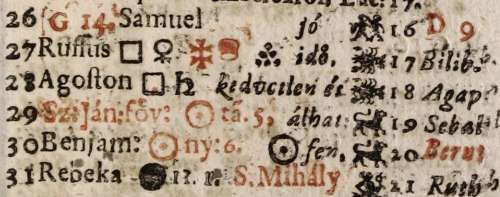 26 G 14. Samuel jó 16 D 9
27 Ruffus □ ♀ idő, 17 Bilib.
28 Agoſton □ ♄ kedvetlen és 18 Agap
29 Sz: Ján: föv: ☉ tá. 5, álhat: 19 Sebaſt
30 Benjam: ☉ ny: 6. ☉ fen, 20
31 Rebeka 11. r. S. Mihály 21 Ruth